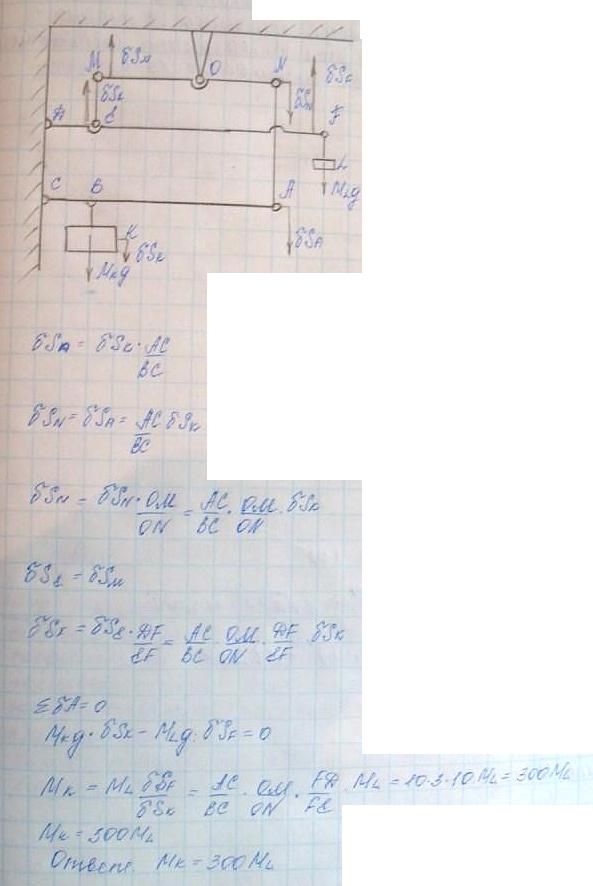 M δSм O N δSF
δSE δSN
Д E F
L
MLg
C B A
K δSA
δSK
MKg
δSA = δSK · AC/BC
δSN = δSA = AC/BC δSK
δSM = δSN · OM/ON = AC/BC · OM/ON · δSK
δSE = δSM
δSF = δSE · ДF/EF = AC/BC · OM/ON · ДF/EF δSK
ΣδA = 0
MKg · δSK − MLg · δSF = 0
MK = ML δSF/δSK = AC/BC · OM/ON · FД/FE · ML = 10·3·10 ML = 300ML
MK = 300ML
Ответ: MK = 300ML